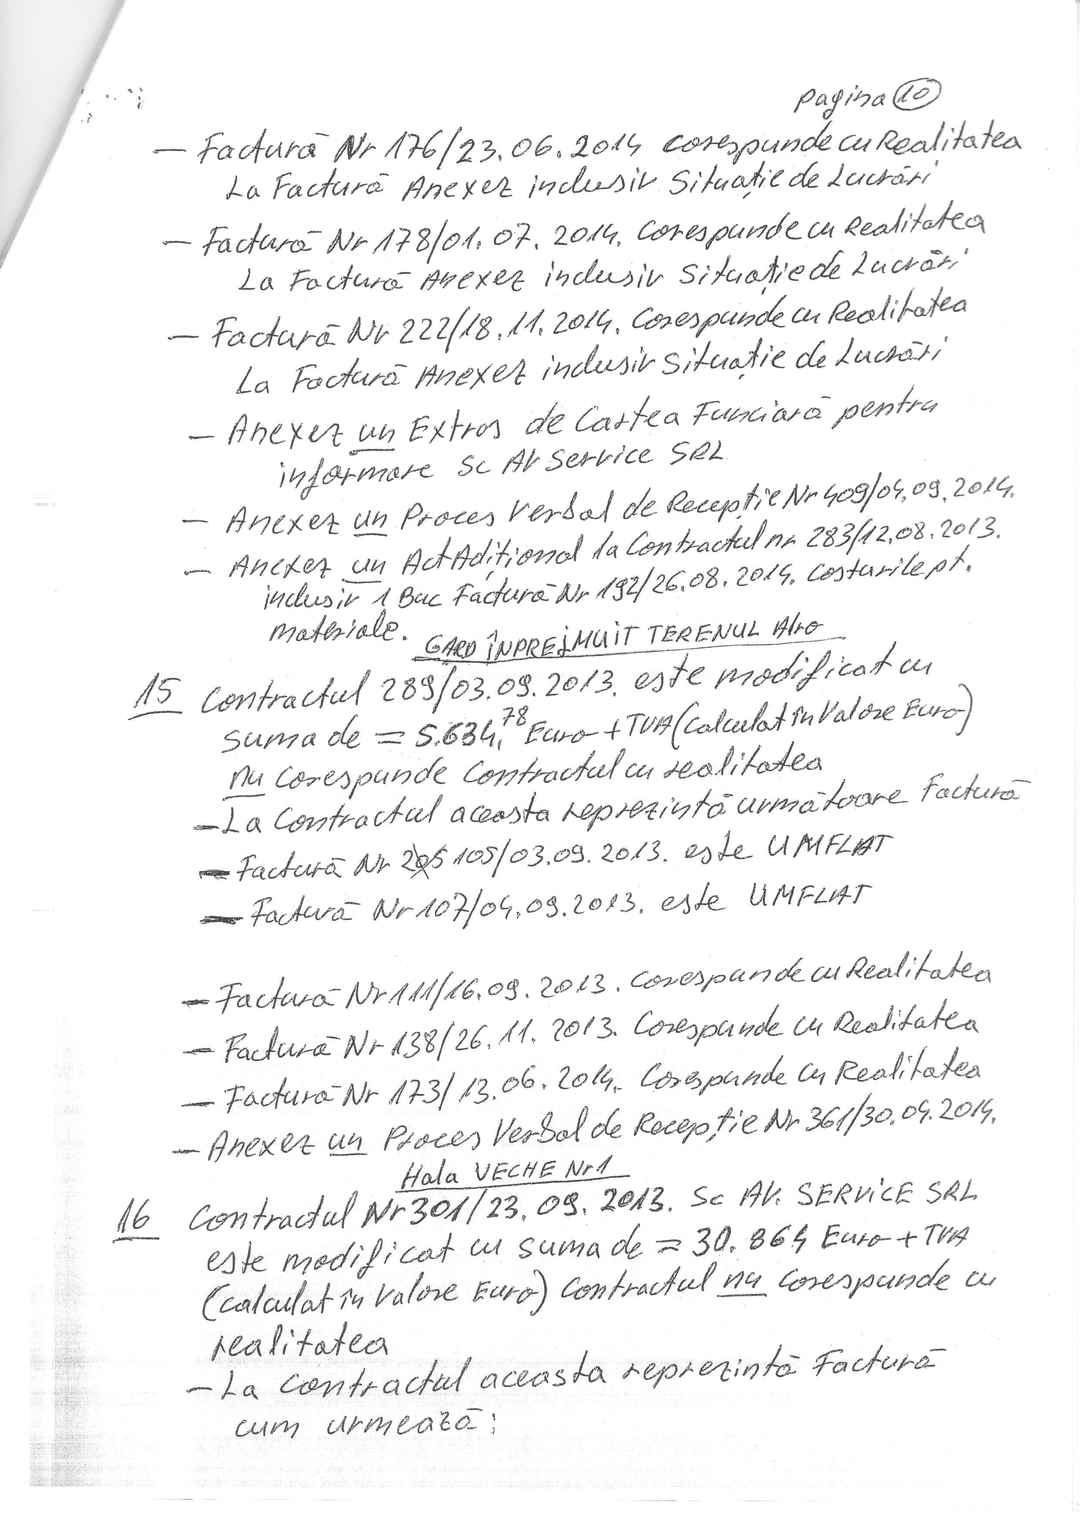 Pagina 10
— Factură Nr 176/23.06.2014 corespunde cu Realitatea
La Factură Anexez inclusiv Situație de Lucrări
— Factură Nr 178/01.07.2014. Corespunde cu Realitatea
La Factură Anexez inclusiv Situație de Lucrări
— Factură Nr 222/18.11.2014. Corespunde cu Realitatea
La Factură Anexez inclusiv Situație de Lucrări
— Anexez un Extras de Cartea Funciară pentru
informare Sc AV Service SRL
— Anexez un Proces Verbal de Recepție Nr 409/04.09.2014.
— Anexez un Act Adițional la Contractul nr 283/12.08.2013.
inclusiv 1 Buc Factură Nr 192/26.08.2014. Costurile pt.
materiale.
GARD ÎNPREJMUIT TERENUL Alro
15 Contractul 289/03.09.2013. este modificat cu
suma de = 5.634,78 Euro + TVA (Calculat în Valore Euro)
nu Corespunde Contractul cu realitatea
— La Contractul aceasta reprezintă următoare Factură
— Factură Nr 105/03.09.2013. este UMFLAT
— Factură Nr 107/04.09.2013. este UMFLAT
— Factură Nr 111/16.09.2013. Corespunde cu Realitatea
— Factură Nr 138/26.11.2013. Corespunde cu Realitatea
— Factură Nr 173/13.06.2014. Corespunde cu Realitatea
— Anexez un Proces Verbal de Recepție Nr 361/30.04.2014.
Hala VECHE Nr 1
16 Contractul Nr 301/23.09.2013. Sc AV. SERVICE SRL
este modificat cu suma de = 30.864 Euro + TVA
(Calculat în Valore Euro) Contractul nu Corespunde cu
realitatea
— La Contractul aceasta reprezintă Factură
cum urmează: